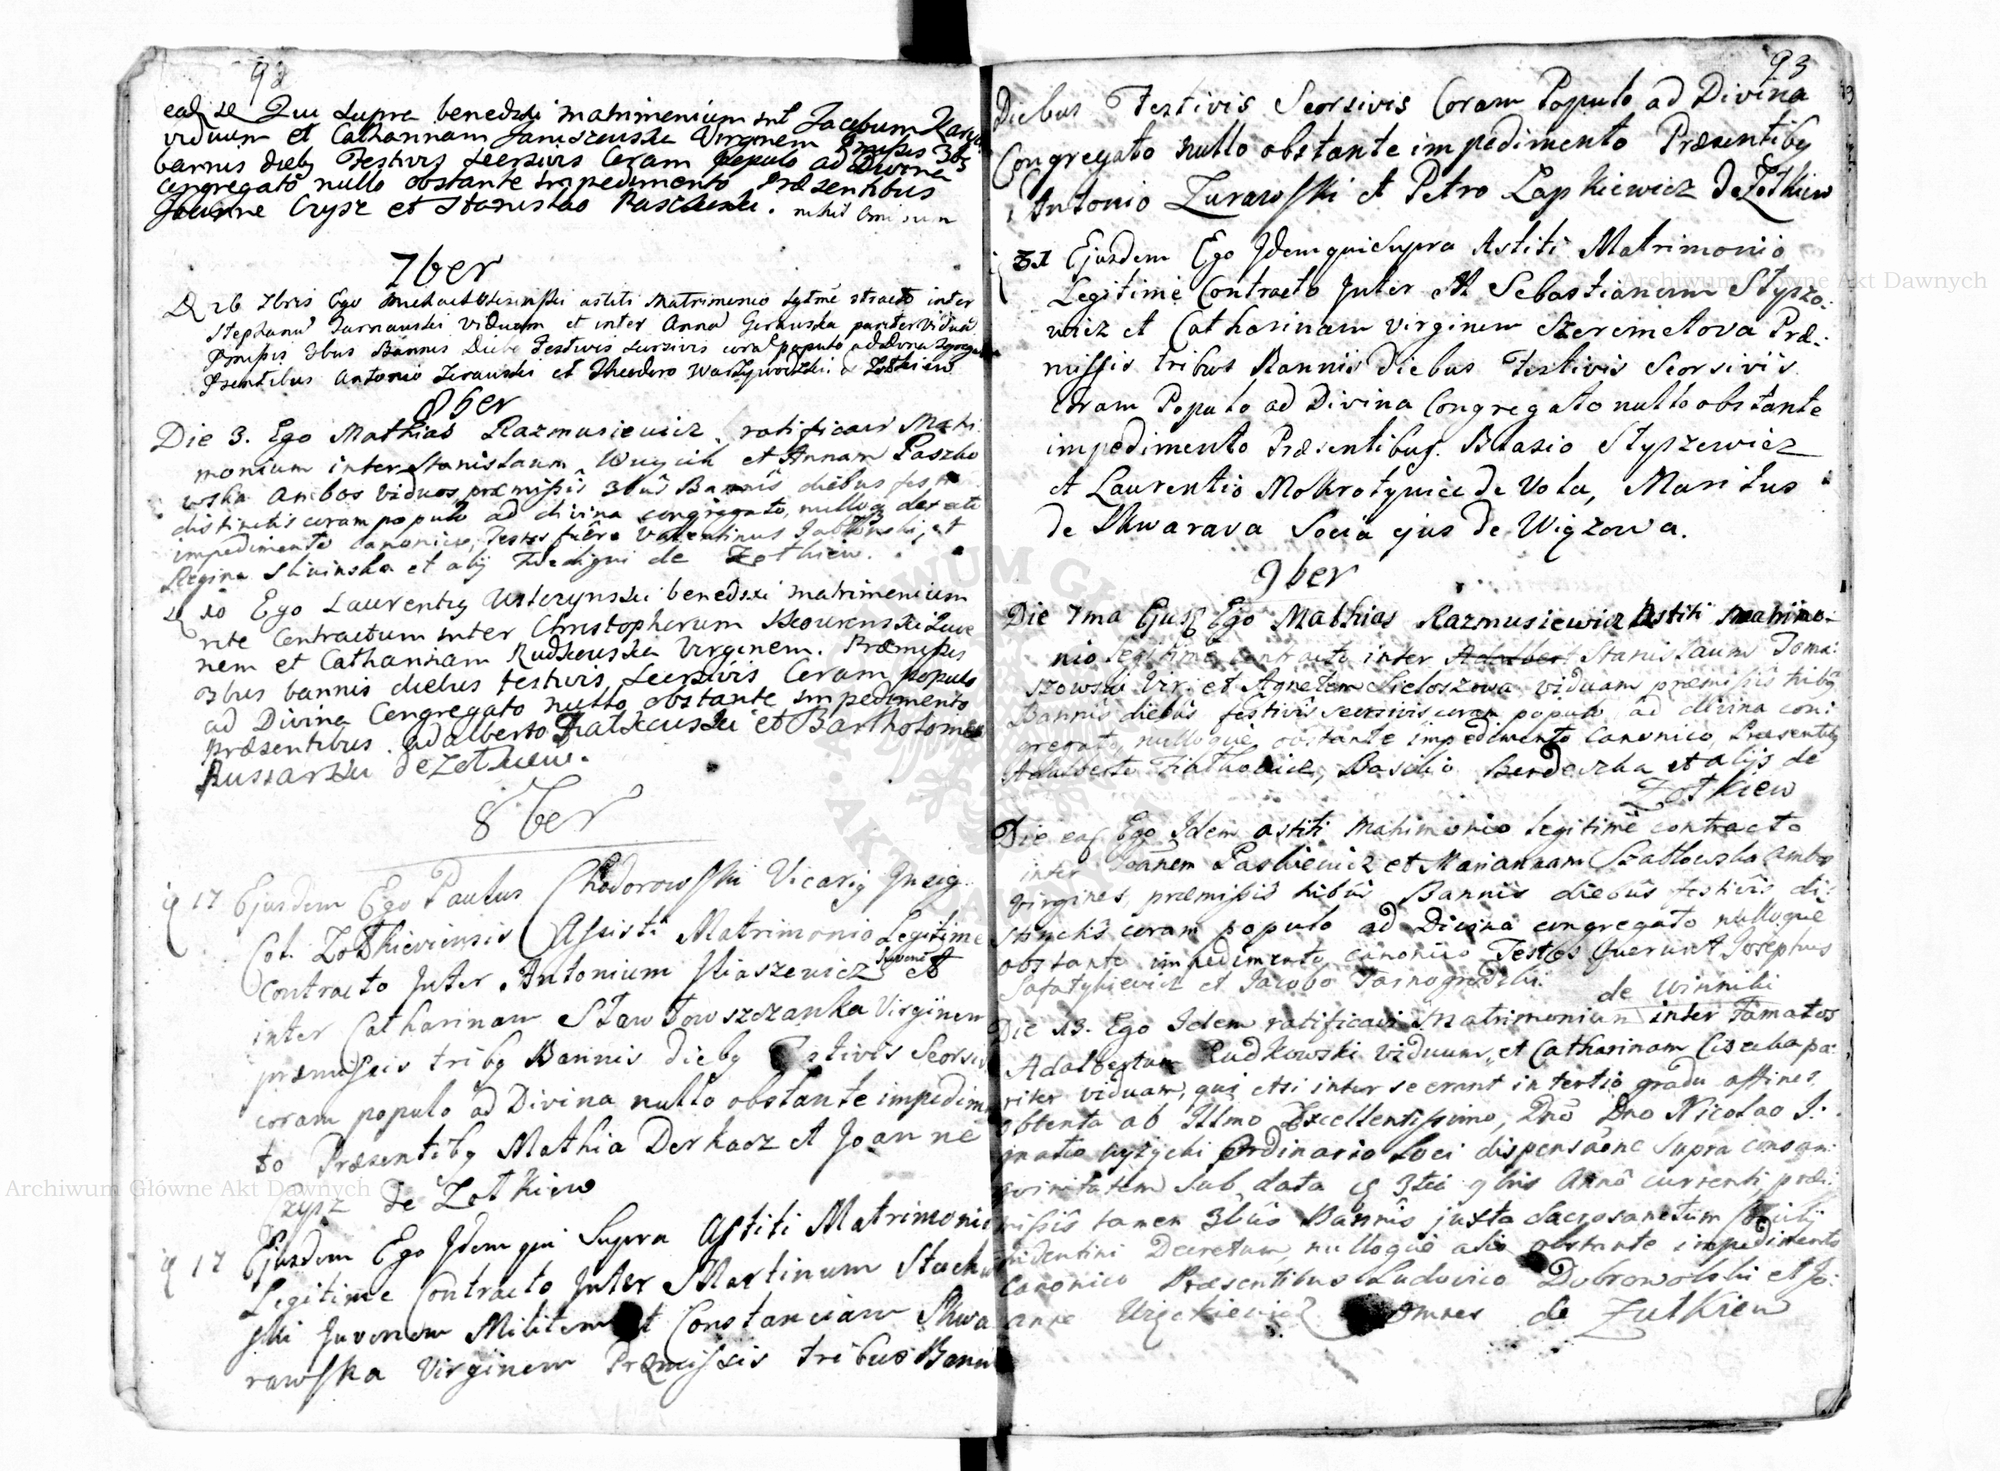 92
ead de Qui supra benedxi matrimonium int Jacobum
viduum et Catharinam Janiszewska Virginem Præmissis 3bs
bannis dieby Festivis seorsivis Coram populo ad Divina
congregato nullo obstante impedimento Præsentibus
Joanne Czysz et Stanislao Paschuski. nihil
7ber
D 26 7bris Ego Michael astiti Matrimonio inter
Stephanu Tarnauski Viduum et inter Anna Gerauska pariter Vidua
Pmissis 3bus Bannis Diebe Festivis sersivis cora populo ad
Psentibus Antonio Zerauski et Theodoro Zolkiew
8ber
Die 3. Ego Mathias Razmusiewicz ratificavi Matri:
monium inter Stanislaum Wuycik et Annam Paszko
wska Ambos Viduos præmissis 3bus Bannis diebus festivis
distinctis coram populo ad divina congregato, nulloq
impedimento canonico, Testes fuere Valentinus Jablonski, et
Regina Sliwinska et alij Fide digni de Zolkiew.
de 10 Ego Laurentig Ustrzynski benedxi matrimonium
rite Contractum inter Christopherum Skowrenski Iuve
nem et Catharinam Rudkouska Virginem. Præmissis
3bus bannis diebus festivis seorsivis Coram Populo
ad Divina Congregato nullo obstante impedimento
Præsentibus adalberto Fiatkauski et Bartholomeo
Russarski de Zolkiew.
8ber
17 Ejusdem Ego Paulus Chodorowski Vicarig Insig
Col. Zolkieviensis Assisti Matrimonio Legitime
Contracto Inter Antonium Iliaszewicz Iuvene et
inter Catharinam Stawtowszczanka Virginem
præmissis triby Bannis dieby Festivis Seorsiv
coram populo ad Divina nullo obstante impedim
to Præsentiby Mathia Derkacz et Joanne
Czysz de Zolkiew
17 Ejusdem Ego Idem qui Supra Astiti Matrimonio
Legitime Contracto Inter Martinum Stach
ski Juvenem Militem et Constanciam Skwa
rawska Virginem Præmissis tribus Banni
93
Diebus Festivis Seorsivis Coram Populo ad Divina
Congregato nullo obstante impedimento Præsentiby
Antonio Zurawski et Petro Lapkiewicz de Zolkiew
31 Ejusdem Ego Idem qui Supra Astiti Matrimonio
Legitime Contracto Inter M Sebastianum Styszo:
wicz et Catharinam virginem Szeremetowa Præ:
missis tribus Bannis diebus Festivis Seorsivis
Coram Populo ad Divina Congregato nullo obstante
impedimento Præsentibus. Blasio Styszewicz
et Laurentio Mokrotynice de Vola, Maritus
de Skwarava Socia ejus de Wiązowa.
9ber
Die 7ma Ejusd Ego Mathias Razmusiewicz Astiti Matrimo:
nio legitime contracto inter Adalbert Stanislaum Toma:
szowski Vir: et Agnetem Sieloszowa viduam præmissis tribus
Bannis diebus festivis seorsivis coram populo ad divina con:
gregato, nulloque obstante impedimento Canonico, Præsentiby
Adalberto Fiatkowicz, Basilio Berdeczka et alijs de
Zolkiew
Die ead Ego Idem astiti Matrimonio legitime contracto
inter Joanem Paskiewicz et Mariannam Szatkowska ambo
virgines, præmissis tribus Bannis diebus festivis di:
stinctis coram populo ad Divina congregato nulloque
obstante impedimento canonico Testes fuerunt Josephus
Safatykiewicz et Jacobo Tarnogrodzki. de Winniki
Die 13. Ego Idem ratificavi Matrimonium inter Famatos
Adalbertum Rudkowski viduum, et Catharinam Ciscaba pa:
riter viduam, qui etsi inter se erant in tertio gradu affines
obtenta ab Illmo Excellentissimo, Dno Dno Nicolao I:
gnatio Wyżycki Ordinario loci dispensaone supra consan:
guinitatem sub data 3tia 9bris Anno currenti, præ:
missis tamen 3bus Bannis juxta Sacrosanctum Concilij
tridentini Decretum, nulloque alio obstante impedimento
Canonico Præsentibus Ludovico Dobrowolski et Jo:
anne omnes de Zulkiew
Archiwum Główne Akt Dawnych
Archiwum Główne Akt Dawnych